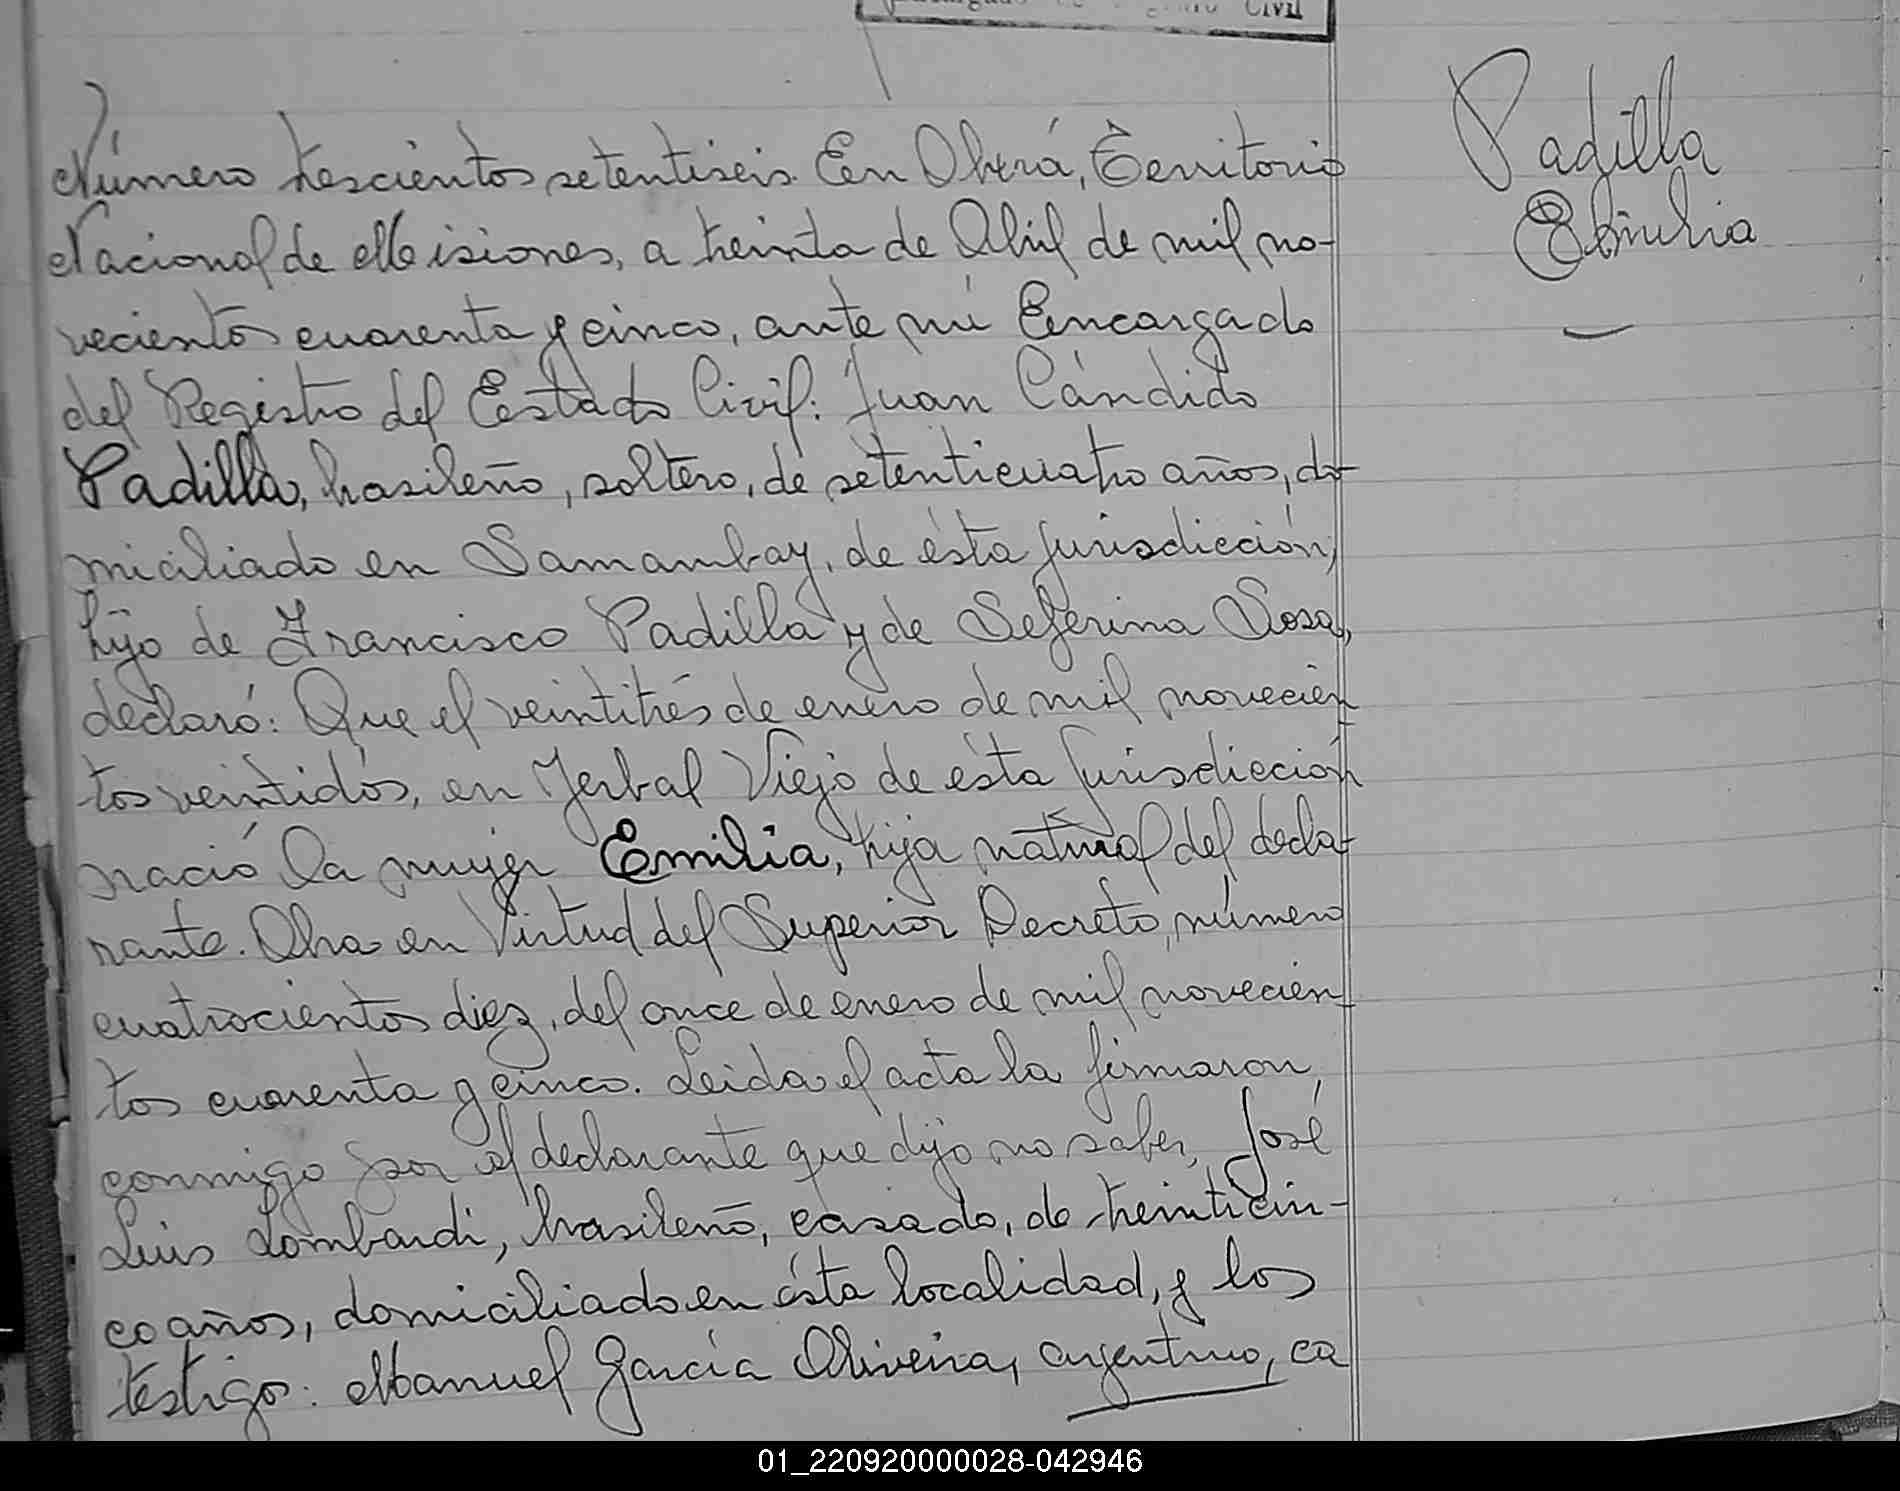 Civil
Padilla
Emilia
Número trescientos setentiseis. En Oberá, Territorio
Nacional de Misiones, a treinta de Abril de mil no-
vecientos cuarenta y cinco, ante mí Encargado
del Registro del Estado Civil: Juan Cándido
Padilla, brasileño, soltero, de setenticuatro años, do-
miciliado en Samambay, de ésta jurisdicción,
hijo de Francisco Padilla y de Seferina Sosa,
declaró: Que el veintitrés de enero de mil novecien
tos veintidós, en Yerbal Viejo de ésta Jurisdicción
nació la mujer Emilia, hija natural del decla-
rante. Obra en Virtud del Superior Decreto, número
cuatrocientos diez, del once de enero de mil novecien-
tos cuarenta y cinco. Leida el acta la firmaron,
conmigo por el declarante que dijo no saber, José
Luis Lombardi, brasileño, casado, de treinticin-
co años, domiciliado en ésta localidad, y los
testigos: Manuel García Oliveira, argentino, ca
01_220920000028-042946